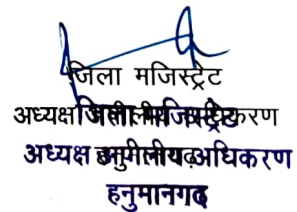 जिला मजिस्ट्रेट
अध्यक्ष अपीलीय अधिकरण
हनुमानगढ़
जिला मजिस्ट्रेट
अध्यक्ष अपीलीय अधिकरण
हनुमानगढ